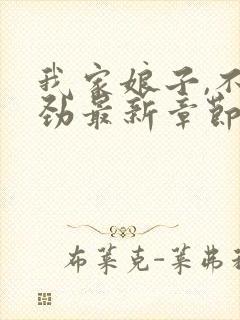 我家娘子,不
劲最新章节
布莱克-莱弗